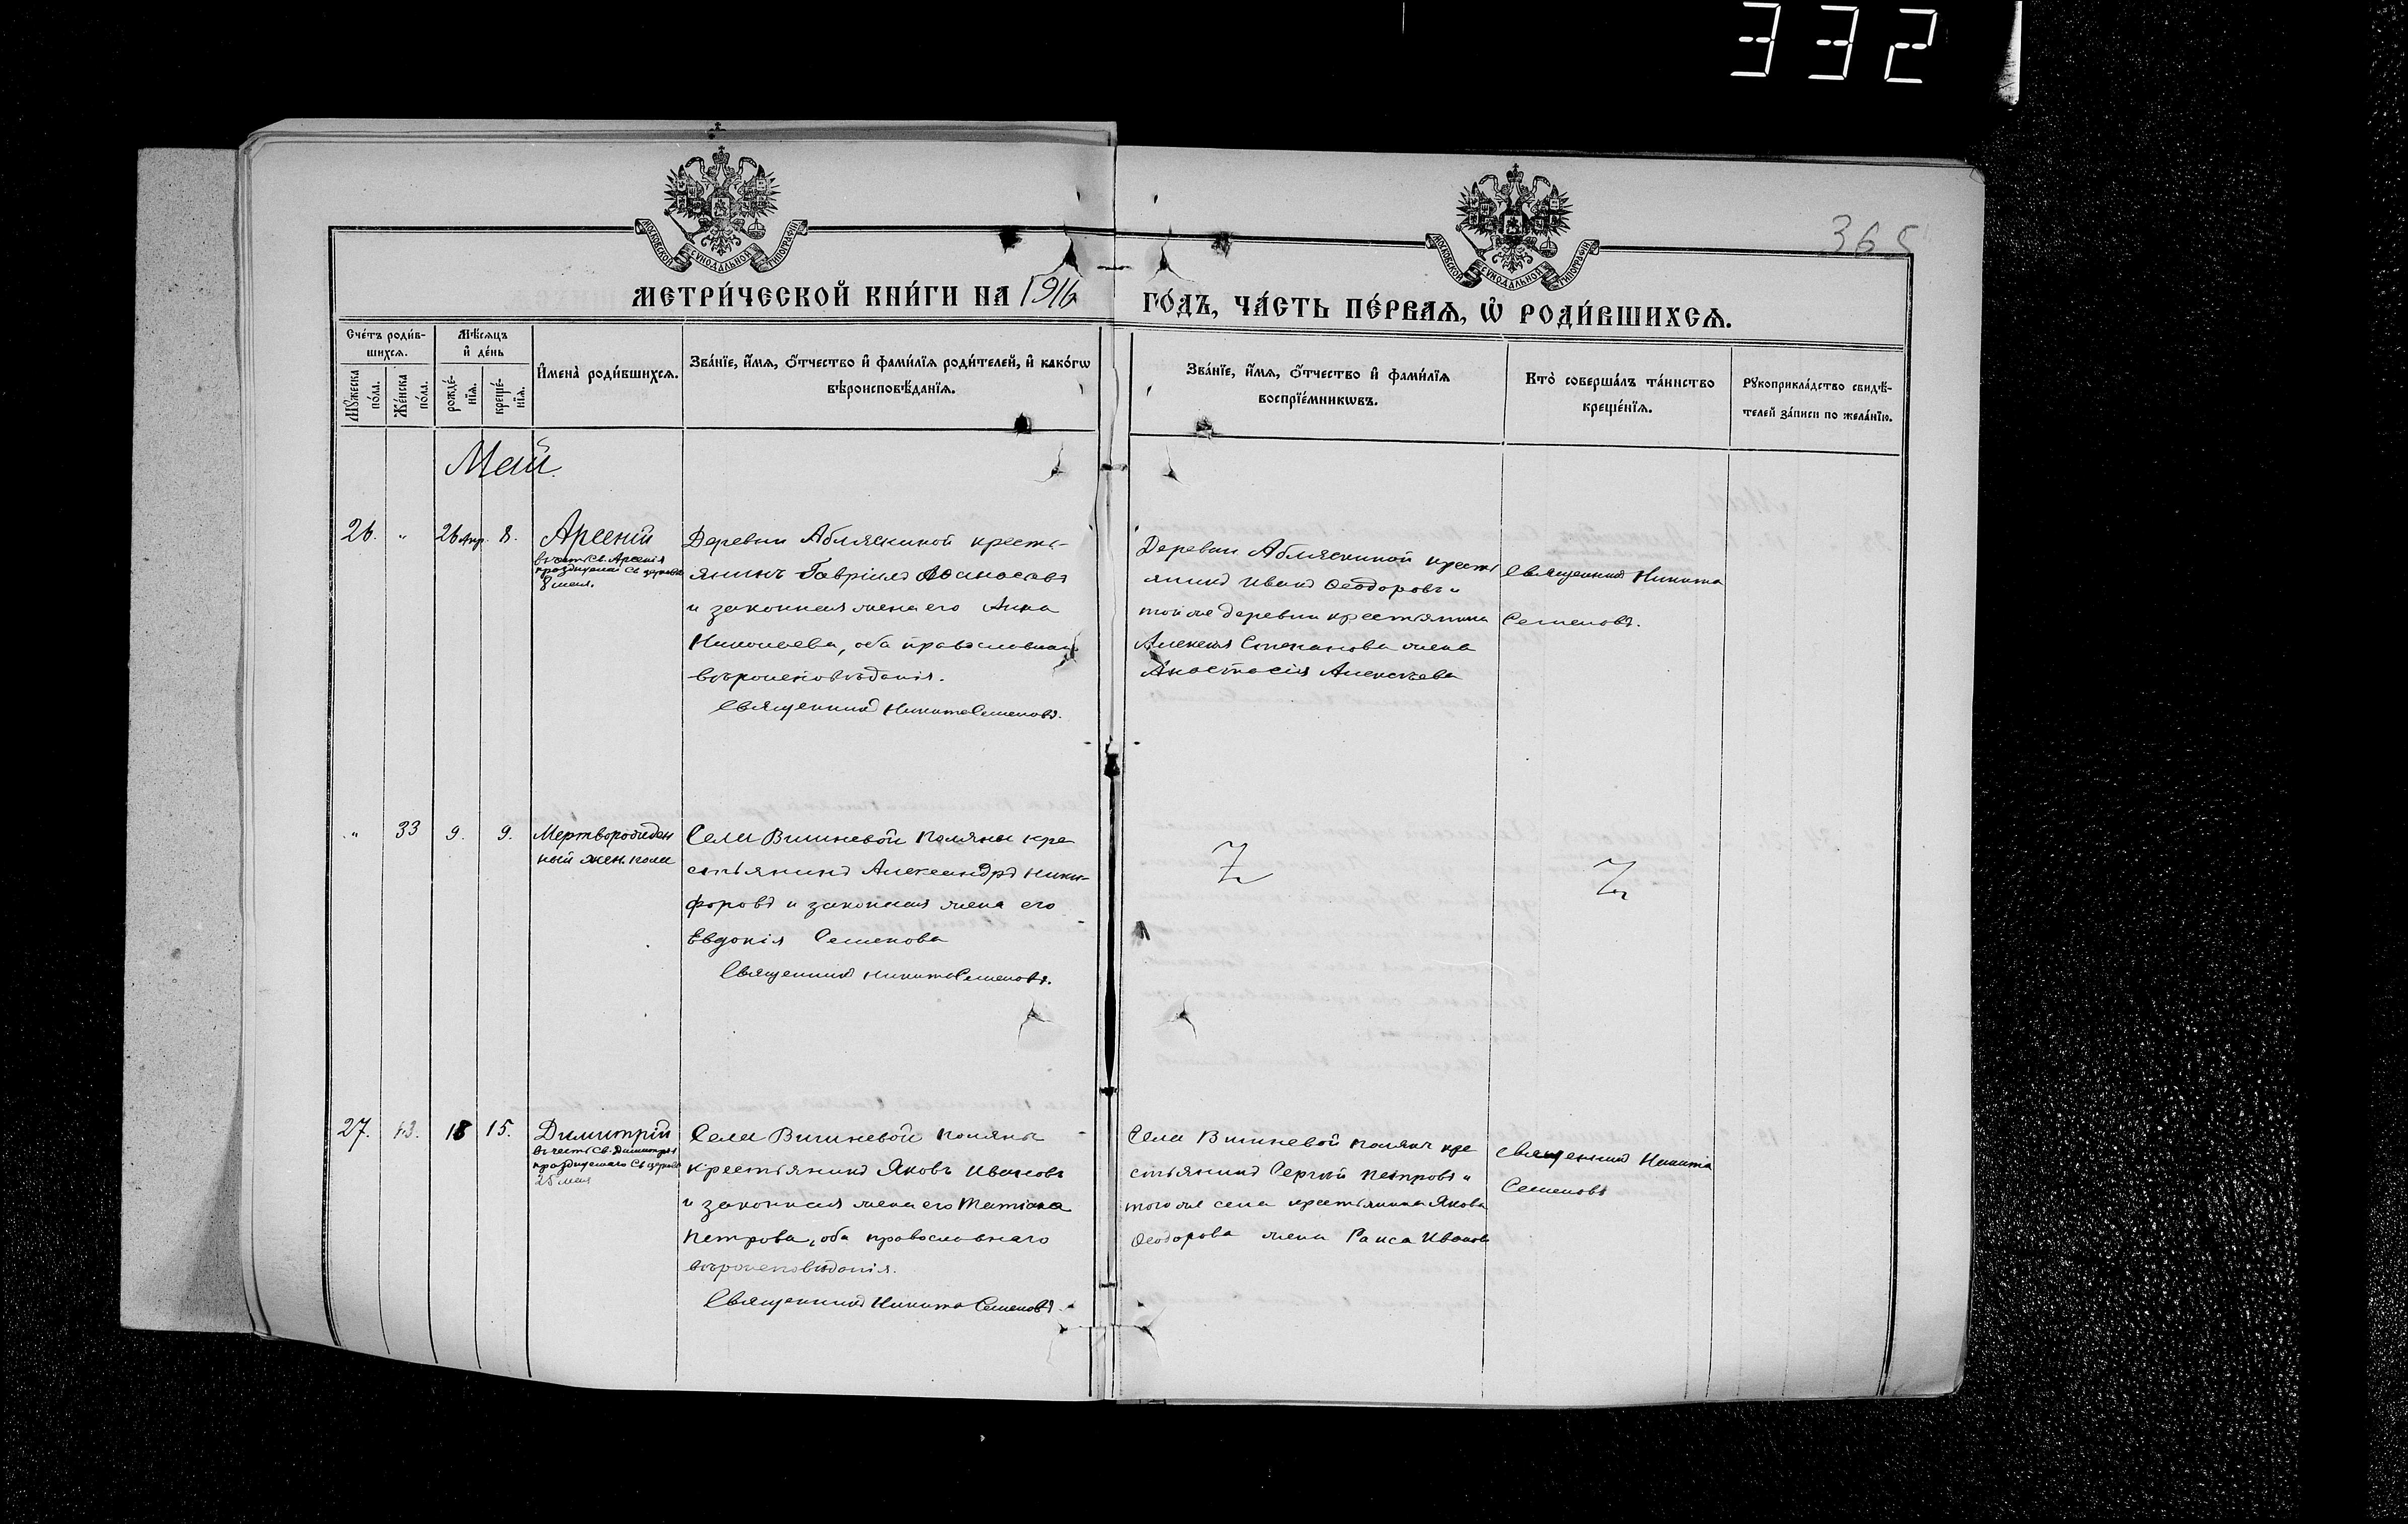 332
365
МОСКОВСКОЙ СѴНОДАЛЬНОЙ ТИПОГРАФІИ
МОСКОВСКОЙ СѴНОДАЛЬНОЙ ТИПОГРАФІИ
МЕТРИ́ЧЕСКОЙ КНИ́ГИ НА 1916
ГО́ДЪ, ЧА́СТЬ ПЕ́РВАѦ, Ѡ҆ РОДИ́ВШИХСѦ.
Сче́тъ роди́в-
шихсѧ.
Мѣ́сѧцъ
и҆ де́нь
Мꙋ́жеска
по́ла.
Же́нска
по́ла.
рожде́-
нїѧ.
креще́-
нїѧ.
И҆мена̀ роди́вшихсѧ.
Зва́нїе, и҆́мѧ, ѻ҆́тчество и҆ фами́лїѧ роди́телей, и҆ како́гѡ
вѣроисповѣ́данїѧ.
Зва́нїе, и҆́мѧ, ѻ҆́тчество и҆ фами́лїѧ
воспрїе́мникѡвъ.
Кто̀ соверша́лъ та́инство
креще́нїѧ.
Рꙋкоприкла́дство свидѣ́-
телей за́писи по жела́нїю.
Май.
26. " 26 Апр. 8. Арсеній
въ честь Св. Арсенія
празднуемаго Св. церковью
8 мая.
Деревни Абляскиной кресть-
янинъ Гавріилъ Аѳанасьевъ
и законная жена его Анна
Николаева, оба православнаго
вѣроисповѣданія.
Священникъ Никита Семеновъ.
Деревни Абляскиной кресть
янинъ Иванъ Ѳеодоровъ и
той же деревни крестьянина
Алексея Степанова жена
Анастасія Алексѣева
Священникъ Никита
Семеновъ.
" 33 9. 9. Мертворожден
ный жен. пола
Села Вишневой Поляны кре
стьянинъ Александръ Ники-
форовъ и законная жена его
Евдокія Семенова
Священникъ Никита Семеновъ.
Z
Z
27. 18 15. Димитрій
въ честь Св. Димитрія
празднуемаго Св. церковью
25 мая
Села Вишневой Поляны
крестьянинъ Яковъ Ивановъ
и законная жена его Татіана
Петрова, оба православнаго
вѣроисповѣданія.
Священникъ Никита Семеновъ.
Села Вишневой Поляны кре
стьянинъ Сергій Петровъ и
того же села крестьянина Якова
Ѳеодорова жена Раиса Иванова
Священникъ Никита
Семеновъ